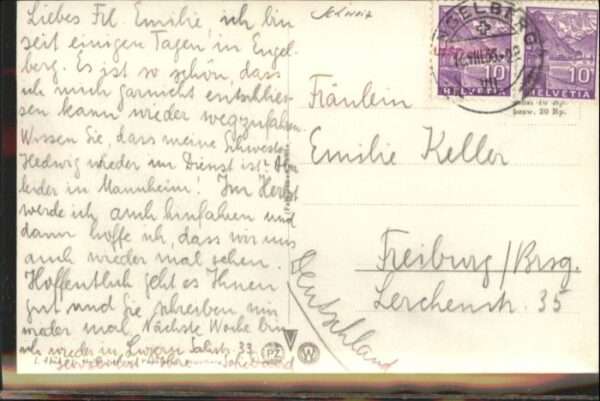 Liebes Frl. Emilie, ich bin
seit einigen Tagen in Engel-
berg. Es ist so schön, dass
ich mich garnicht entschlies-
sen kann wieder wegzufahren.
Wissen Sie, dass meine Schwester
Hedwig wieder im Dienst ist? Aber
leider in Mannheim! Im Herbst
werde ich auch hinfahren und
dann hoffe ich, dass wir uns
auch wieder mal sehen.
Hoffentlich geht es Ihnen
gut und Sie schreiben mir
wieder mal. Nächste Woche bin
ich wieder in Luzern Salistr. 33
Schweiz
ENGELBERG
VIII
10
HELVETIA
10
HELVETIA
bezw. 20 Rp.
Fräulein
Emilie Keller
Freiburg/Brsg.
Lerchenstr. 35
Deutschland
PZ
W